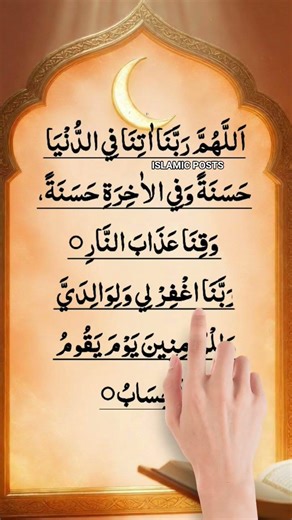 اَللّٰهُمَّ رَبَّنَا اٰتِنَا فِي الدُّنْيَا
ISLAMIC POSTS
حَسَنَةً وَفِي الْاٰخِرَةِ حَسَنَةً،
وَقِنَا عَذَابَ النَّارِ ○
رَبَّنَا اغْفِرْ لِي وَلِوَالِدَيَّ
يَوْمَ يَقُومُ
○